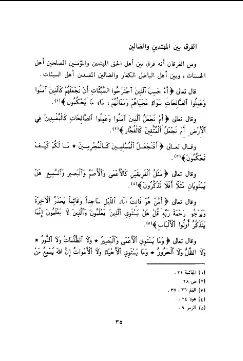 الفرق بين المهتدين والضالين
ومن الفرقان أنه فرق بين أهل الحق المهتدين والمؤمنين المصلحين أهل
الحسنات، وبين أهل الباطل الكفار والضالين المفسدين أهل السيئات.
قال تعالى ﴿ أم حسب الذين اجترحوا السيئات أن نجعلهم كالذين آمنوا
وعملوا الصالحات سواء محياهم ومماتهم، ساء ما يحكمون ﴾(١).
وقال تعالى ﴿ أم نجعل الذين آمنوا وعملوا الصالحات كالمفسدين في
الأرض أم نجعل المتقين كالفجار ﴾(٢).
وقال تعالى ﴿ أفنجعل المسلمين كالمجرمين * ما لكم كيف
تحكمون ﴾(٣).
وقال تعالى ﴿ مثل الفريقين كالأعمى والأصم والبصير والسميع هل
يستويان مثلا أفلا تذكرون ﴾(٤).
وقال تعالى ﴿ أمن هو قانت آناء الليل ساجدا وقائما يحذر الآخرة
ويرجو رحمة ربه قل هل يستوي الذين يعلمون والذين لا يعلمون إنما
يتذكر أولوا الألباب ﴾(٥).
وقال تعالى ﴿ وما يستوي الأعمى والبصير * ولا الظلمات ولا النور *
ولا الظل ولا الحرور * وما يستوي الأحياء ولا الأموات إن الله يسمع من
(١) الجاثية ٢١.
(٢) ص ٢٨.
(٣) القلم ٣٥ ، ٣٦.
(٤) هود ٢٤.
(٥) الزمر ٩.
٣٥